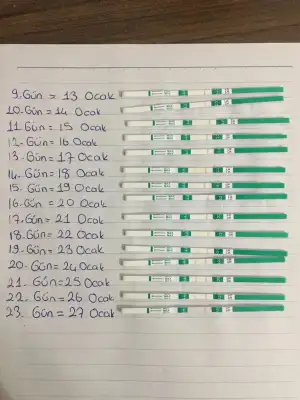 9.Gün = 13 Ocak
10.Gün = 14 Ocak
11.Gün = 15 Ocak
12.Gün = 16 Ocak
13.Gün = 17 Ocak
14.Gün = 18 Ocak
15.Gün = 19 Ocak
16.Gün = 20 Ocak
17.Gün = 21 Ocak
18.Gün = 22 Ocak
19.Gün = 23 Ocak
20.Gün = 24 Ocak
21.Gün = 25 Ocak
22.Gün = 26 Ocak
23.Gün = 27 Ocak